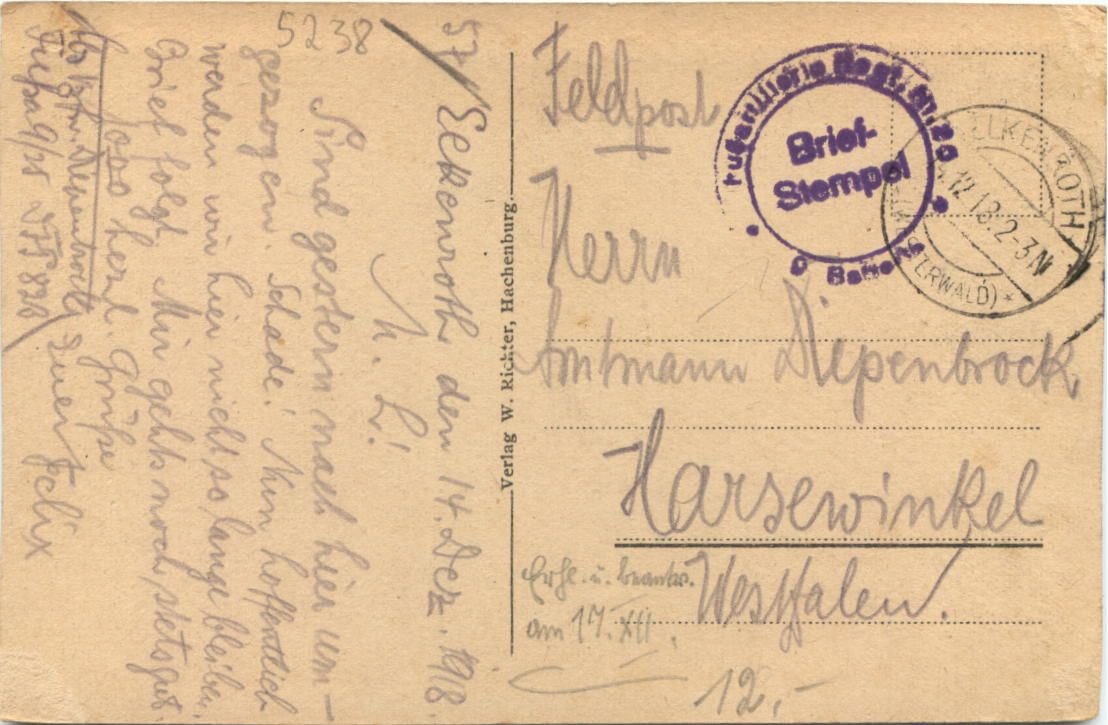 5238
57/ Elkenroth den 14. Dez. 1918.
M. L!
Sind gestern nach hier um-
gezogen. Schade! Nun hoffentlich
werden wir hier nicht so lange bleiben.
Brief folgt. Mir gehts noch stets gut.
1000 herzl. Grüße
Euer Felix
Abs. Diepenbrock
Fußa 9/25
Verlag W. Richter, Hachenburg.
Feldpost
Herrn
Amtmann Diepenbrock,
Harsewinkel
Westfalen.
Erh. u. beantw.
am 17. XII.
12.-
Fußartillerie Regt.
Brief-
Stempel
Batterie
ELKENROTH
12.18.2-3N
(WESTERWALD)